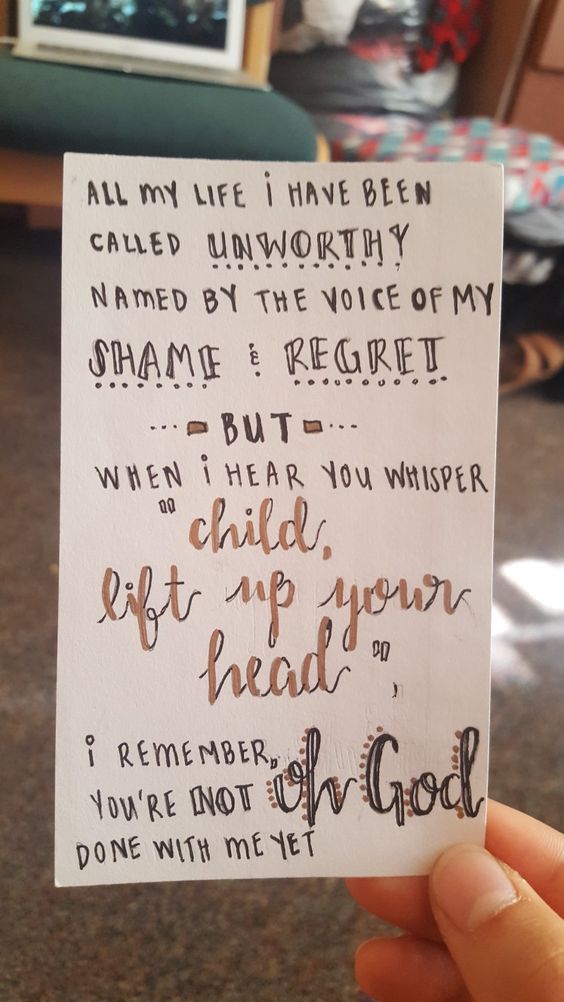 ALL MY LIFE i HAVE BEEN
CALLED UNWORTHY
NAMED BY THE VOICE OF MY
SHAME & REGRET
BUT
WHEN i HEAR YOU WHISPER
"child,
lift up your
head",
i REMEMBER, oh God
YOU'RE NOT
DONE WITH ME YET